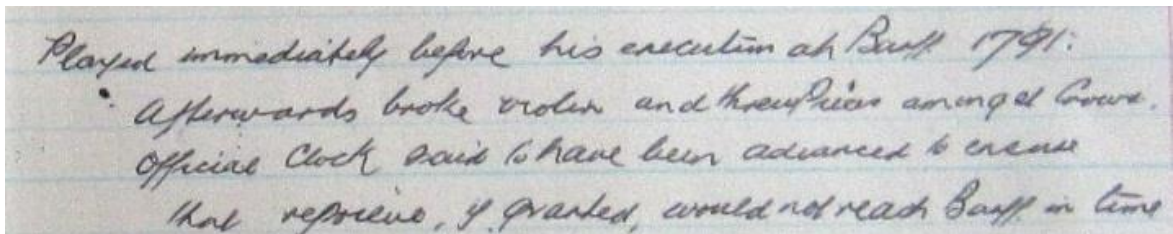 Played immediately before his execution at Banff 1791.
Afterwards broke violin and threw pieces amongst Crowd.
Official Clock said to have been advanced to ensure
that reprieve, if granted, would not reach Banff in time